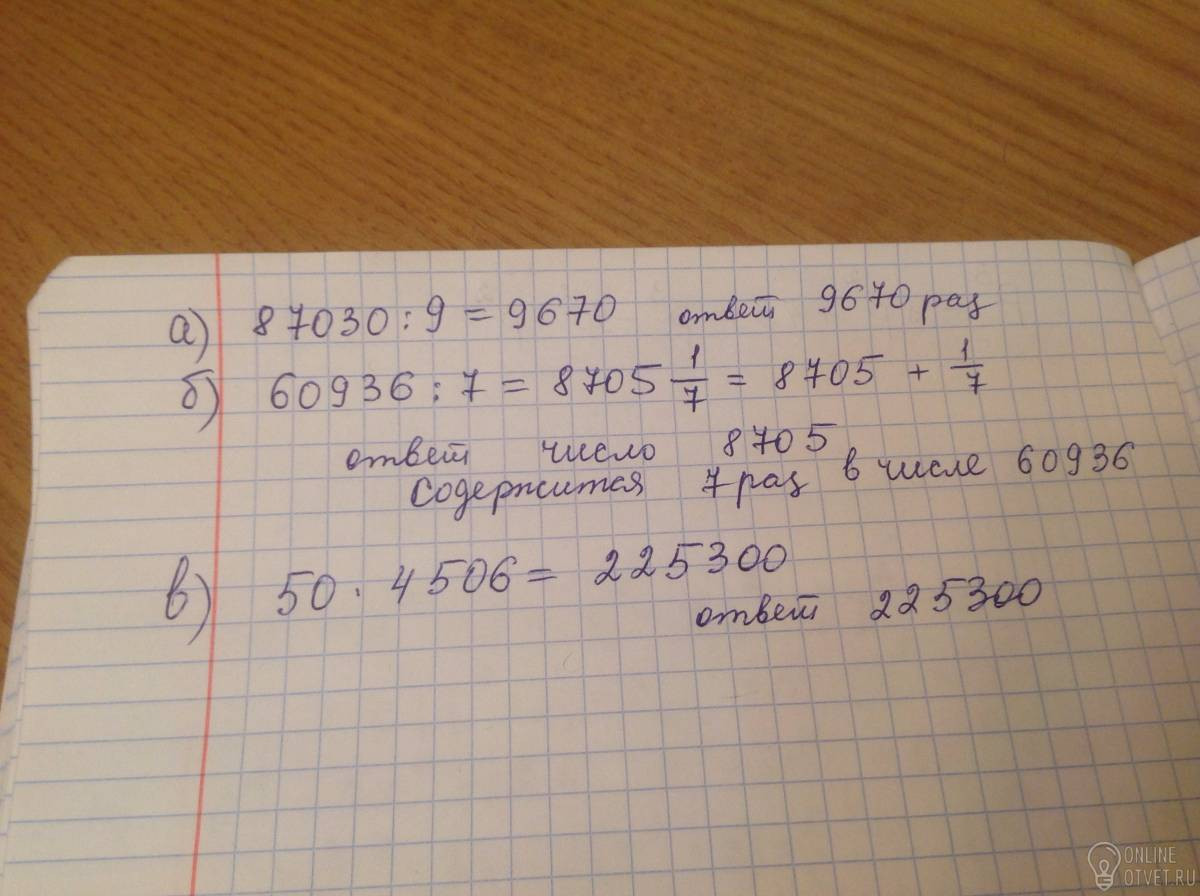 а) 87030 : 9 = 9670 ответ 9670 раз
б) 60936 : 7 = 8705 1/7 = 8705 + 1/7
ответ число 8705
содержится 7 раз в числе 60936
в) 50 · 4506 = 225300
ответ 225300
ONLINE
OTVET.RU